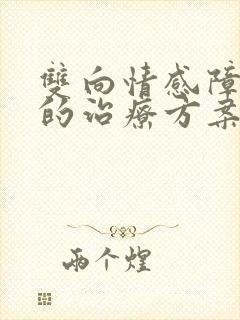 雙向情感障
的治療方案
兩个煌